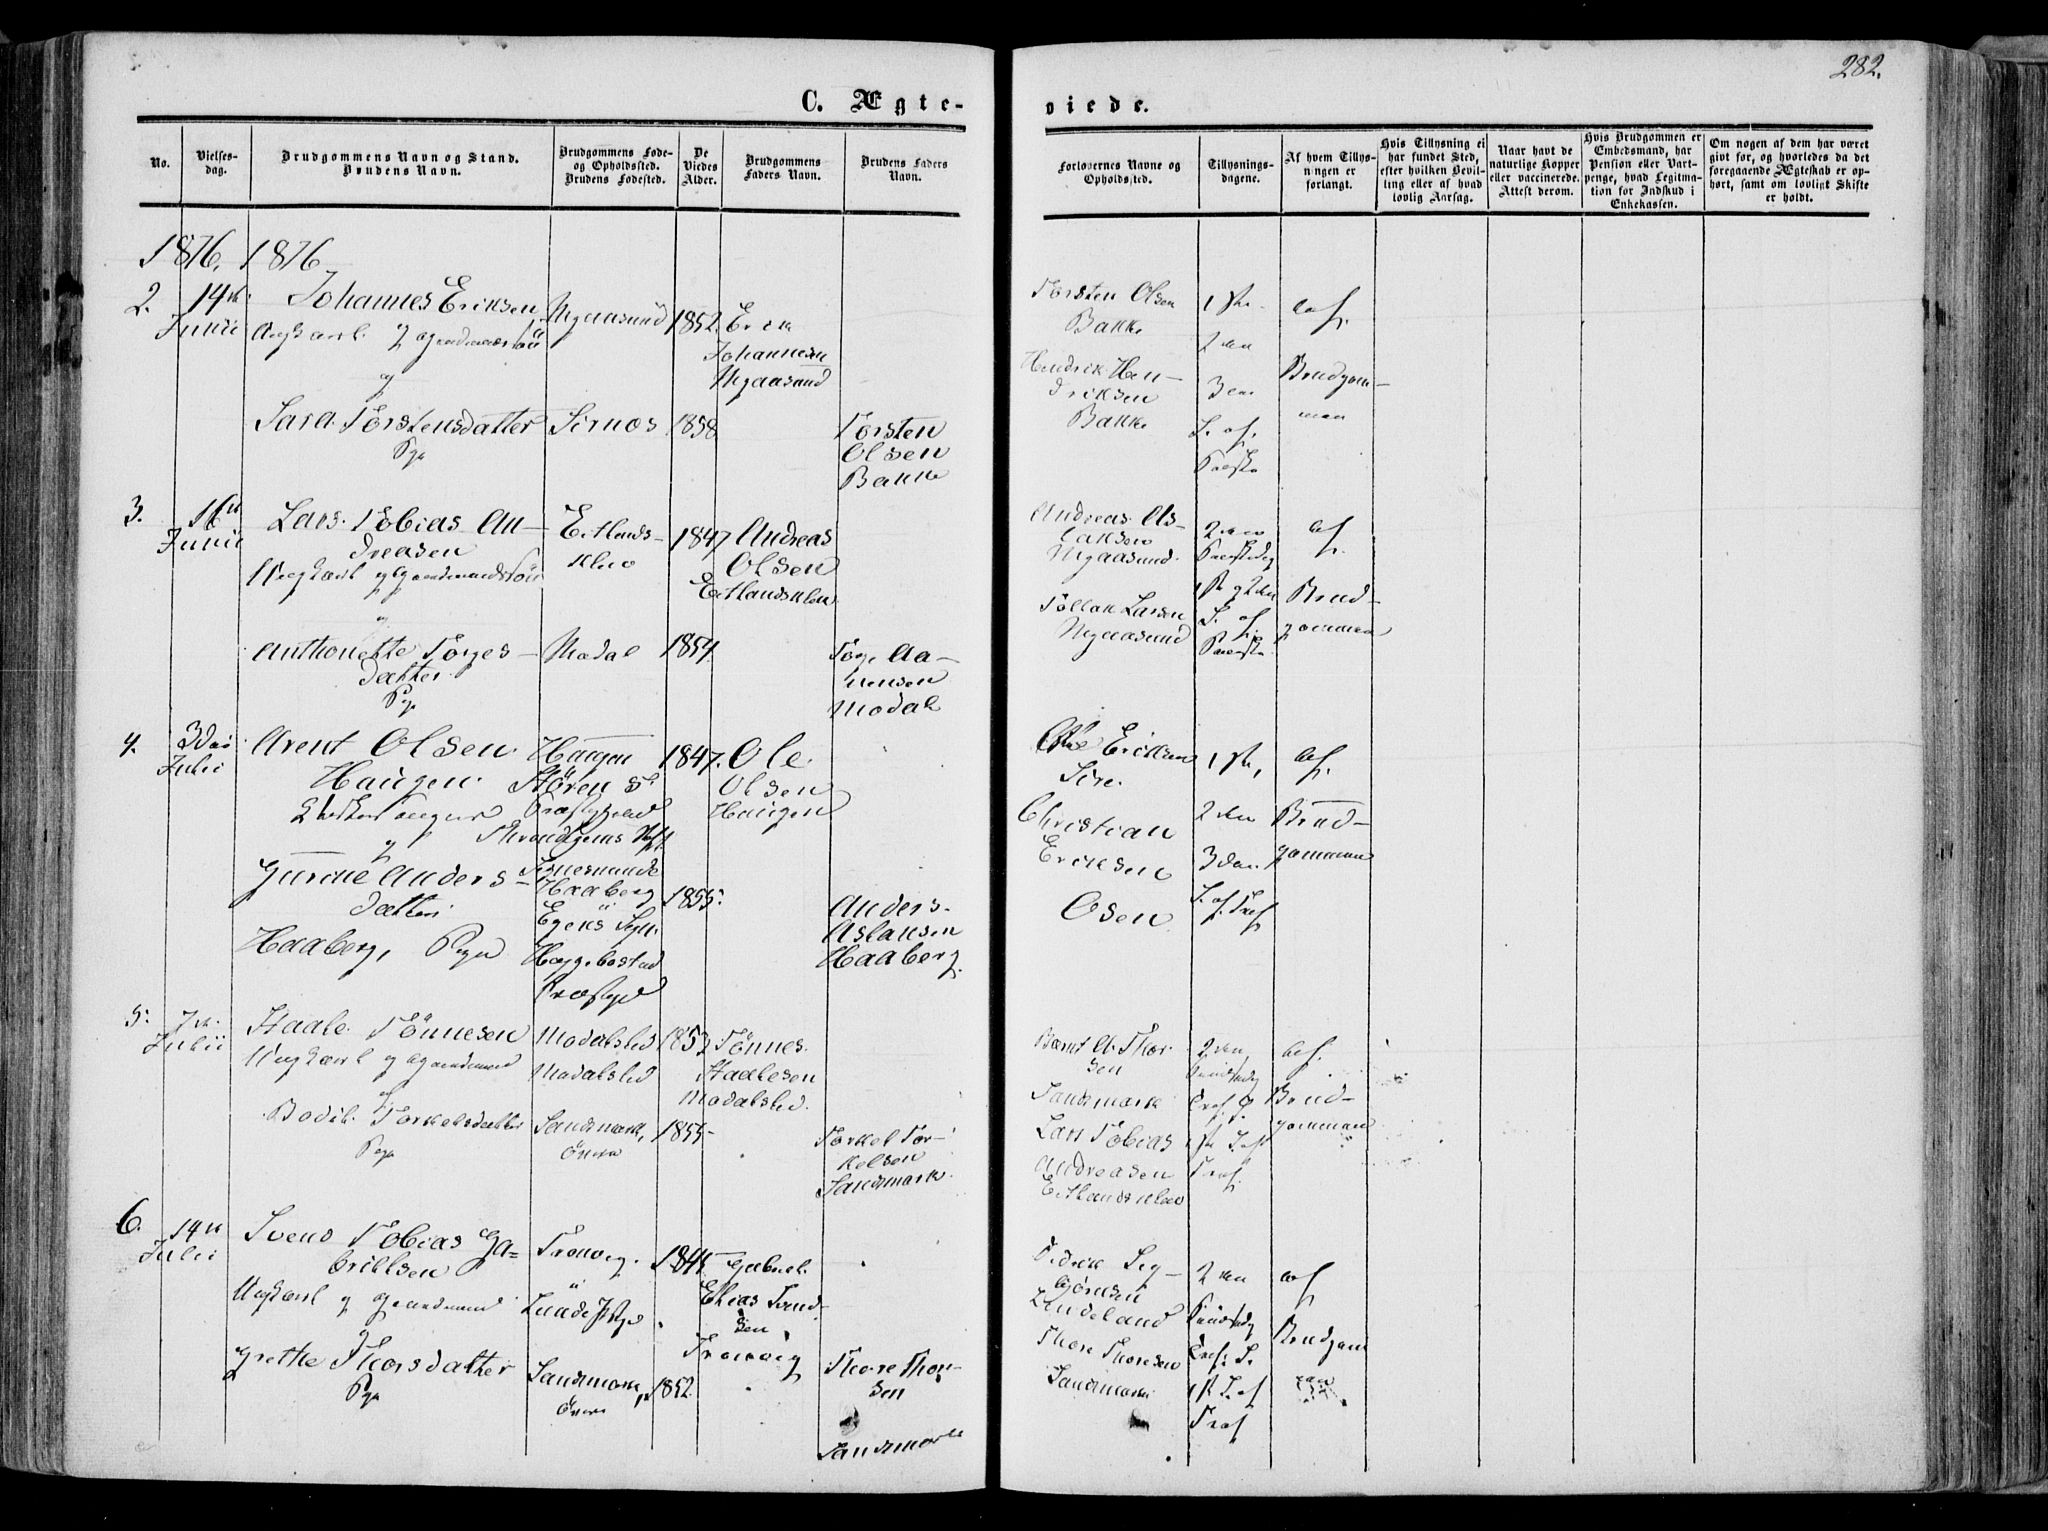 282.
C. Ægte-
viede.
No.
Vielses-
dag.
Brudgommens Navn og Stand.
Brudens Navn.
Brudgommens Føde-
og Opholdssted.
Brudens Fødested.
De
Viedes
Alder.
Brudgommens
Faders Navn.
Brudens Faders
Navn.
Forlovernes Navne og
Opholdssted.
Tillysnings-
dagene.
Af hvem Tillys-
ningen er
forlangt.
Hvis Tillysning ei
har fundet Sted,
efter hvilken Bevil-
ling eller af hvad
lovlig Aarsag.
Naar havt de
naturlige Kopper
eller vaccinerede.
Attest derom.
Hvis Brudgommen er
Embedsmand, har
Pension eller Vart-
penge, hvad Legitima-
tion for Indskud i
Enkekassen.
Om nogen af dem har været
givt før, og hvorledes da det
foregaaende Ægteskab er op-
hørt, samt om lovligt Skifte
er holdt.
1876. 1876
2.
14de
Junii
Johannes Eriksen
Ungkarl og Gaardmandssön
og
Sara Torstensdatter
Pge
Mydasund
Sirnes
1852.
1858
Erik
Johannesen
Torsten
Olsen
Bakke
Torsten Olsen
Bakke
Hendrik Hen-
driksen
Bakke
1ste
2den
3die
S. af
af
Brudgom-
men
3.
16de
Junii
Lars Tobias An-
dreasen
Ungkarl og Gaardmandssön
og
Anthonette Torges-
datter
Pge
Eitlands-
klev
Modal
1847
1854
Andreas
Olsen
Eitlandsklev
Torge Aa-
nensen
Modal
Andreas As-
laksen
Tollak Larsen
2den
1ste og 2den
S. af
af
Brud-
gommen
4.
3die
Julii
Arent Olsen
Haugen
og
Gurine Anders-
datter
Haaberg, Pige
Haugen
Stören S.
Præstegjeld
Throndhjems Stift
Haaberg
Egens Sogn
Hægebostad
Præstegjd
1847.
1855.
Ole
Olsen
Haugen
Anders
Aslaksen
Haaberg.
Eriksen
Sire.
Christian
Eriksen
Osen
1ste,
2den
3die
S. af
af
Brud-
gommen
5.
7de
Julii
Staale Tönnesen
Ungkarl og Gaardmand
og
Bodil Torkelsdatter
Pge
Modalsled
Modalsled
Sandsmark,
Övre
1852
1855
Tönnes
Staalesen
Modalsled.
Torkel Tor-
kelsen
Sandsmark.
Bernt A. Thor-
sen
Sandsmark
Lars Tobias
Andreasen
Eitlandsklev
2den
af
Brud-
gommen
6.
14de
Julii
Svend Tobias Ga-
brielsen
Ungkarl og Gaardmand
Grethe Thorsdatter
Pge
Tronvig.
Lunde
Sandsmark,
1852
Gabriel
Elias Svend-
sen,
Tronvig
Thore Thor-
sen
Sandsmark
Didrik Sig-
björnsen
Lindeland
Thore Thoresen
Sandsmark
2den
1ste S. af
af
Brudgom